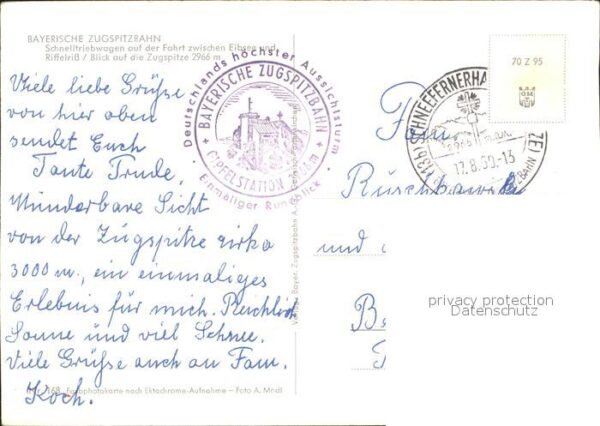 BAYERISCHE ZUGSPITZBAHN
Schnelltriebwagen auf der Fahrt zwischen Eibsee und
Riffelriß / Blick auf die Zugspitze 2966 m
Viele liebe Grüße
von hier oben
sendet Euch
Tante Trude,
Wunderbare Sicht
von der Zugspitze zirka
3000 m, ein einmaliges
Erlebnis für mich. Reichlich
Sonne und viel Schnee.
Viele Grüße auch an Fam.
Koch.
168 Farbphotokarte nach Ektachrome-Aufnahme – Foto A. Mindl
Deutschlands höchster Aussichtsturm
BAYERISCHE ZUGSPITZBAHN
GIPFELSTATION
Einmaliger Rundblick
Bayer. Zugspitzbahn A.
SCHNEEFERNERHA
2966 m
17.8.59.-13
70 Z 95
Fam
und
privacy protection
Datenschutz